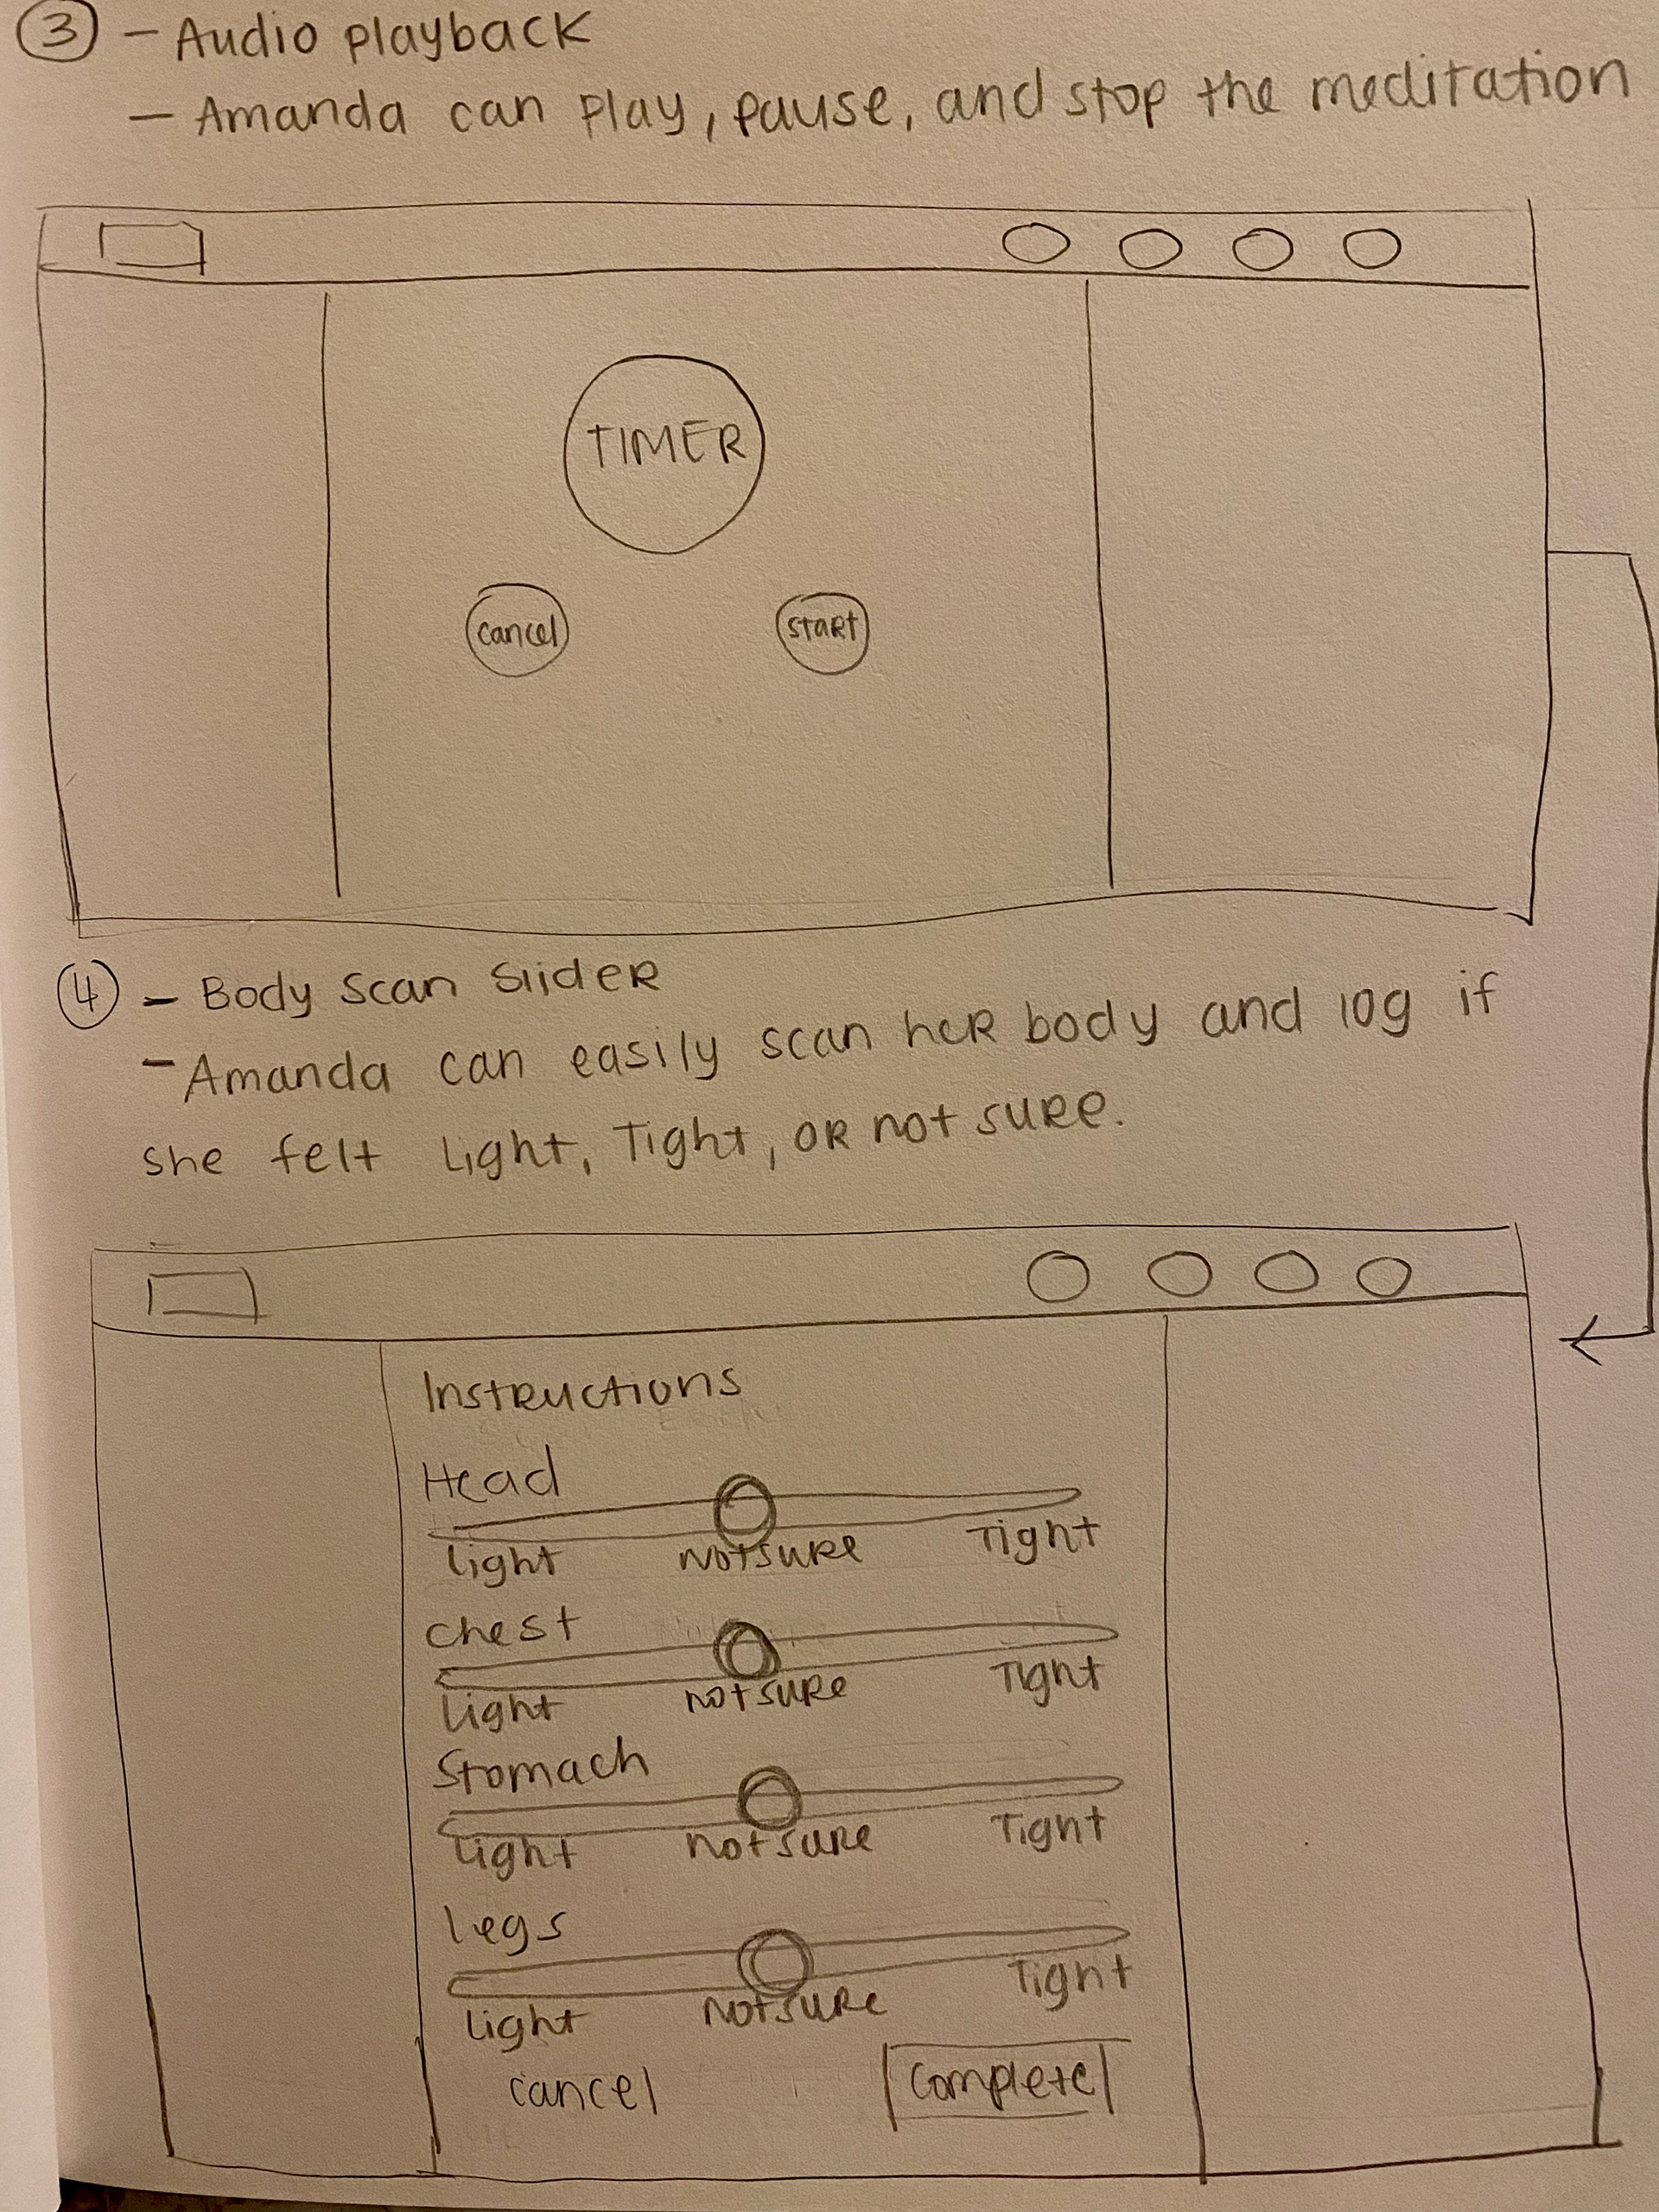 3 - Audio playback
- Amanda can play, pause, and stop the meditation
TIMER
cancel start
4 - Body Scan Slider
- Amanda can easily scan her body and log if
she felt Light, Tight, or not sure.
Instructions
Head
Light Not sure Tight
Chest
Light not sure Tight
Stomach
Light not sure Tight
Legs
Light Not sure Tight
cancel Complete